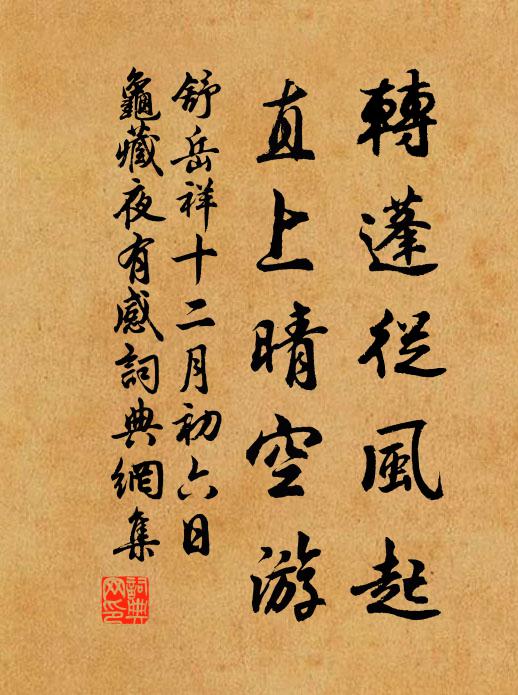 轉蓬從風起
直上晴空游
舒岳祥十二月初六日
龜藏夜有感詞典網集
詞典
网印